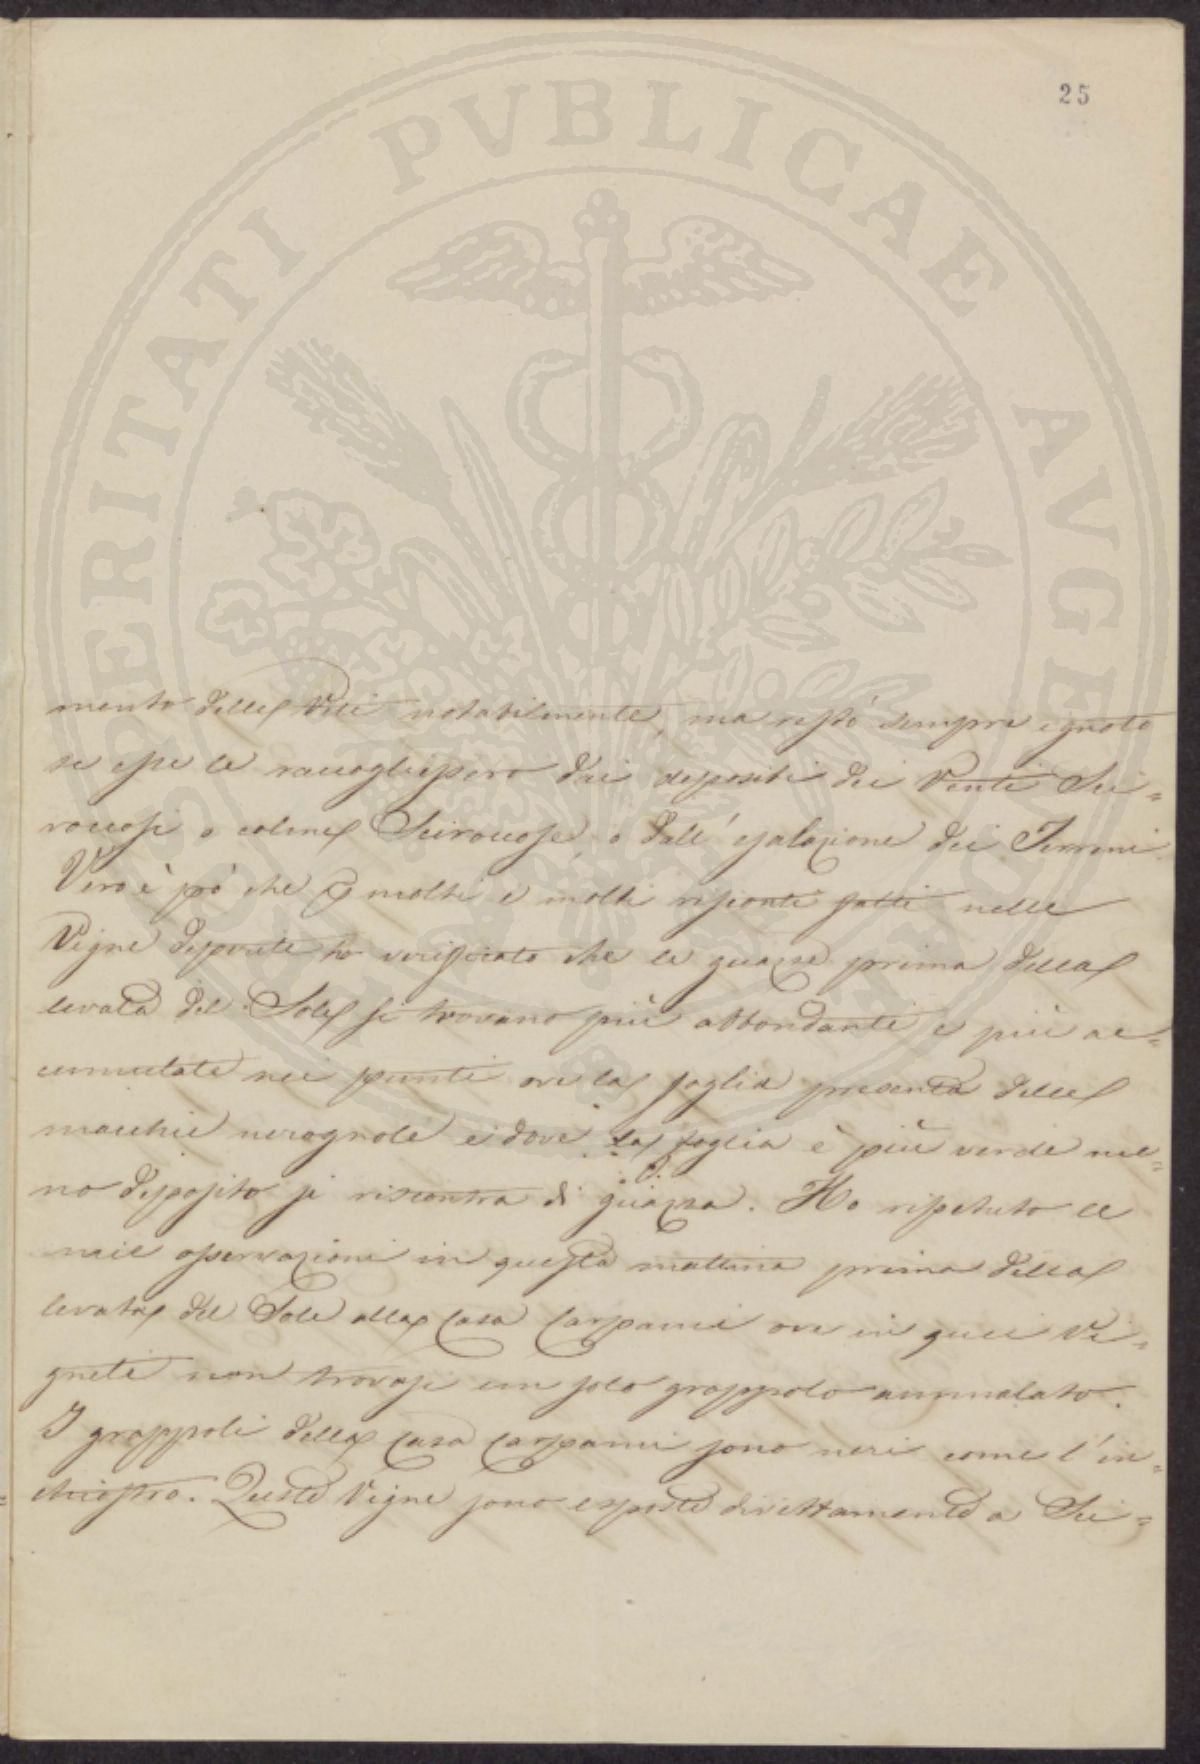 25
PROSPERITATI PVBLICAE AVGENDAE
mento delle Viti notabilmente, ma restò sempre ignoto
se esse le raccogliessero dai depositi dei Venti Sci=
roccosi o calme Sciroccose, o dall'esalazione dei Terreni.
Vero è però che molti e molti riscontri fatti nelle
Vigne deperite ho verificato che le guazze prima della
levata del Sole si trovano più abbondanti e più ac=
cumulate nei punti ove la foglia presenta delle
macchie nerognole e dove la foglia è più verde me=
no deposito si riscontra di guazza. Ho ripetuto le
mie osservazioni in questa mattina prima della
levata del Sole alla Casa Carpanei ove in quei Vi=
gneti non trovasi un solo grappolo ammalato.
I grappoli della Casa Carpanei sono neri come l'in=
chiostro. Queste Vigne sono esposte direttamente a Sci=